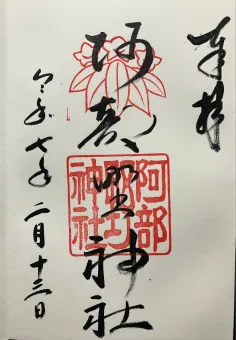 奉拝
阿部野神社
令和七年二月十三日
阿部野神社